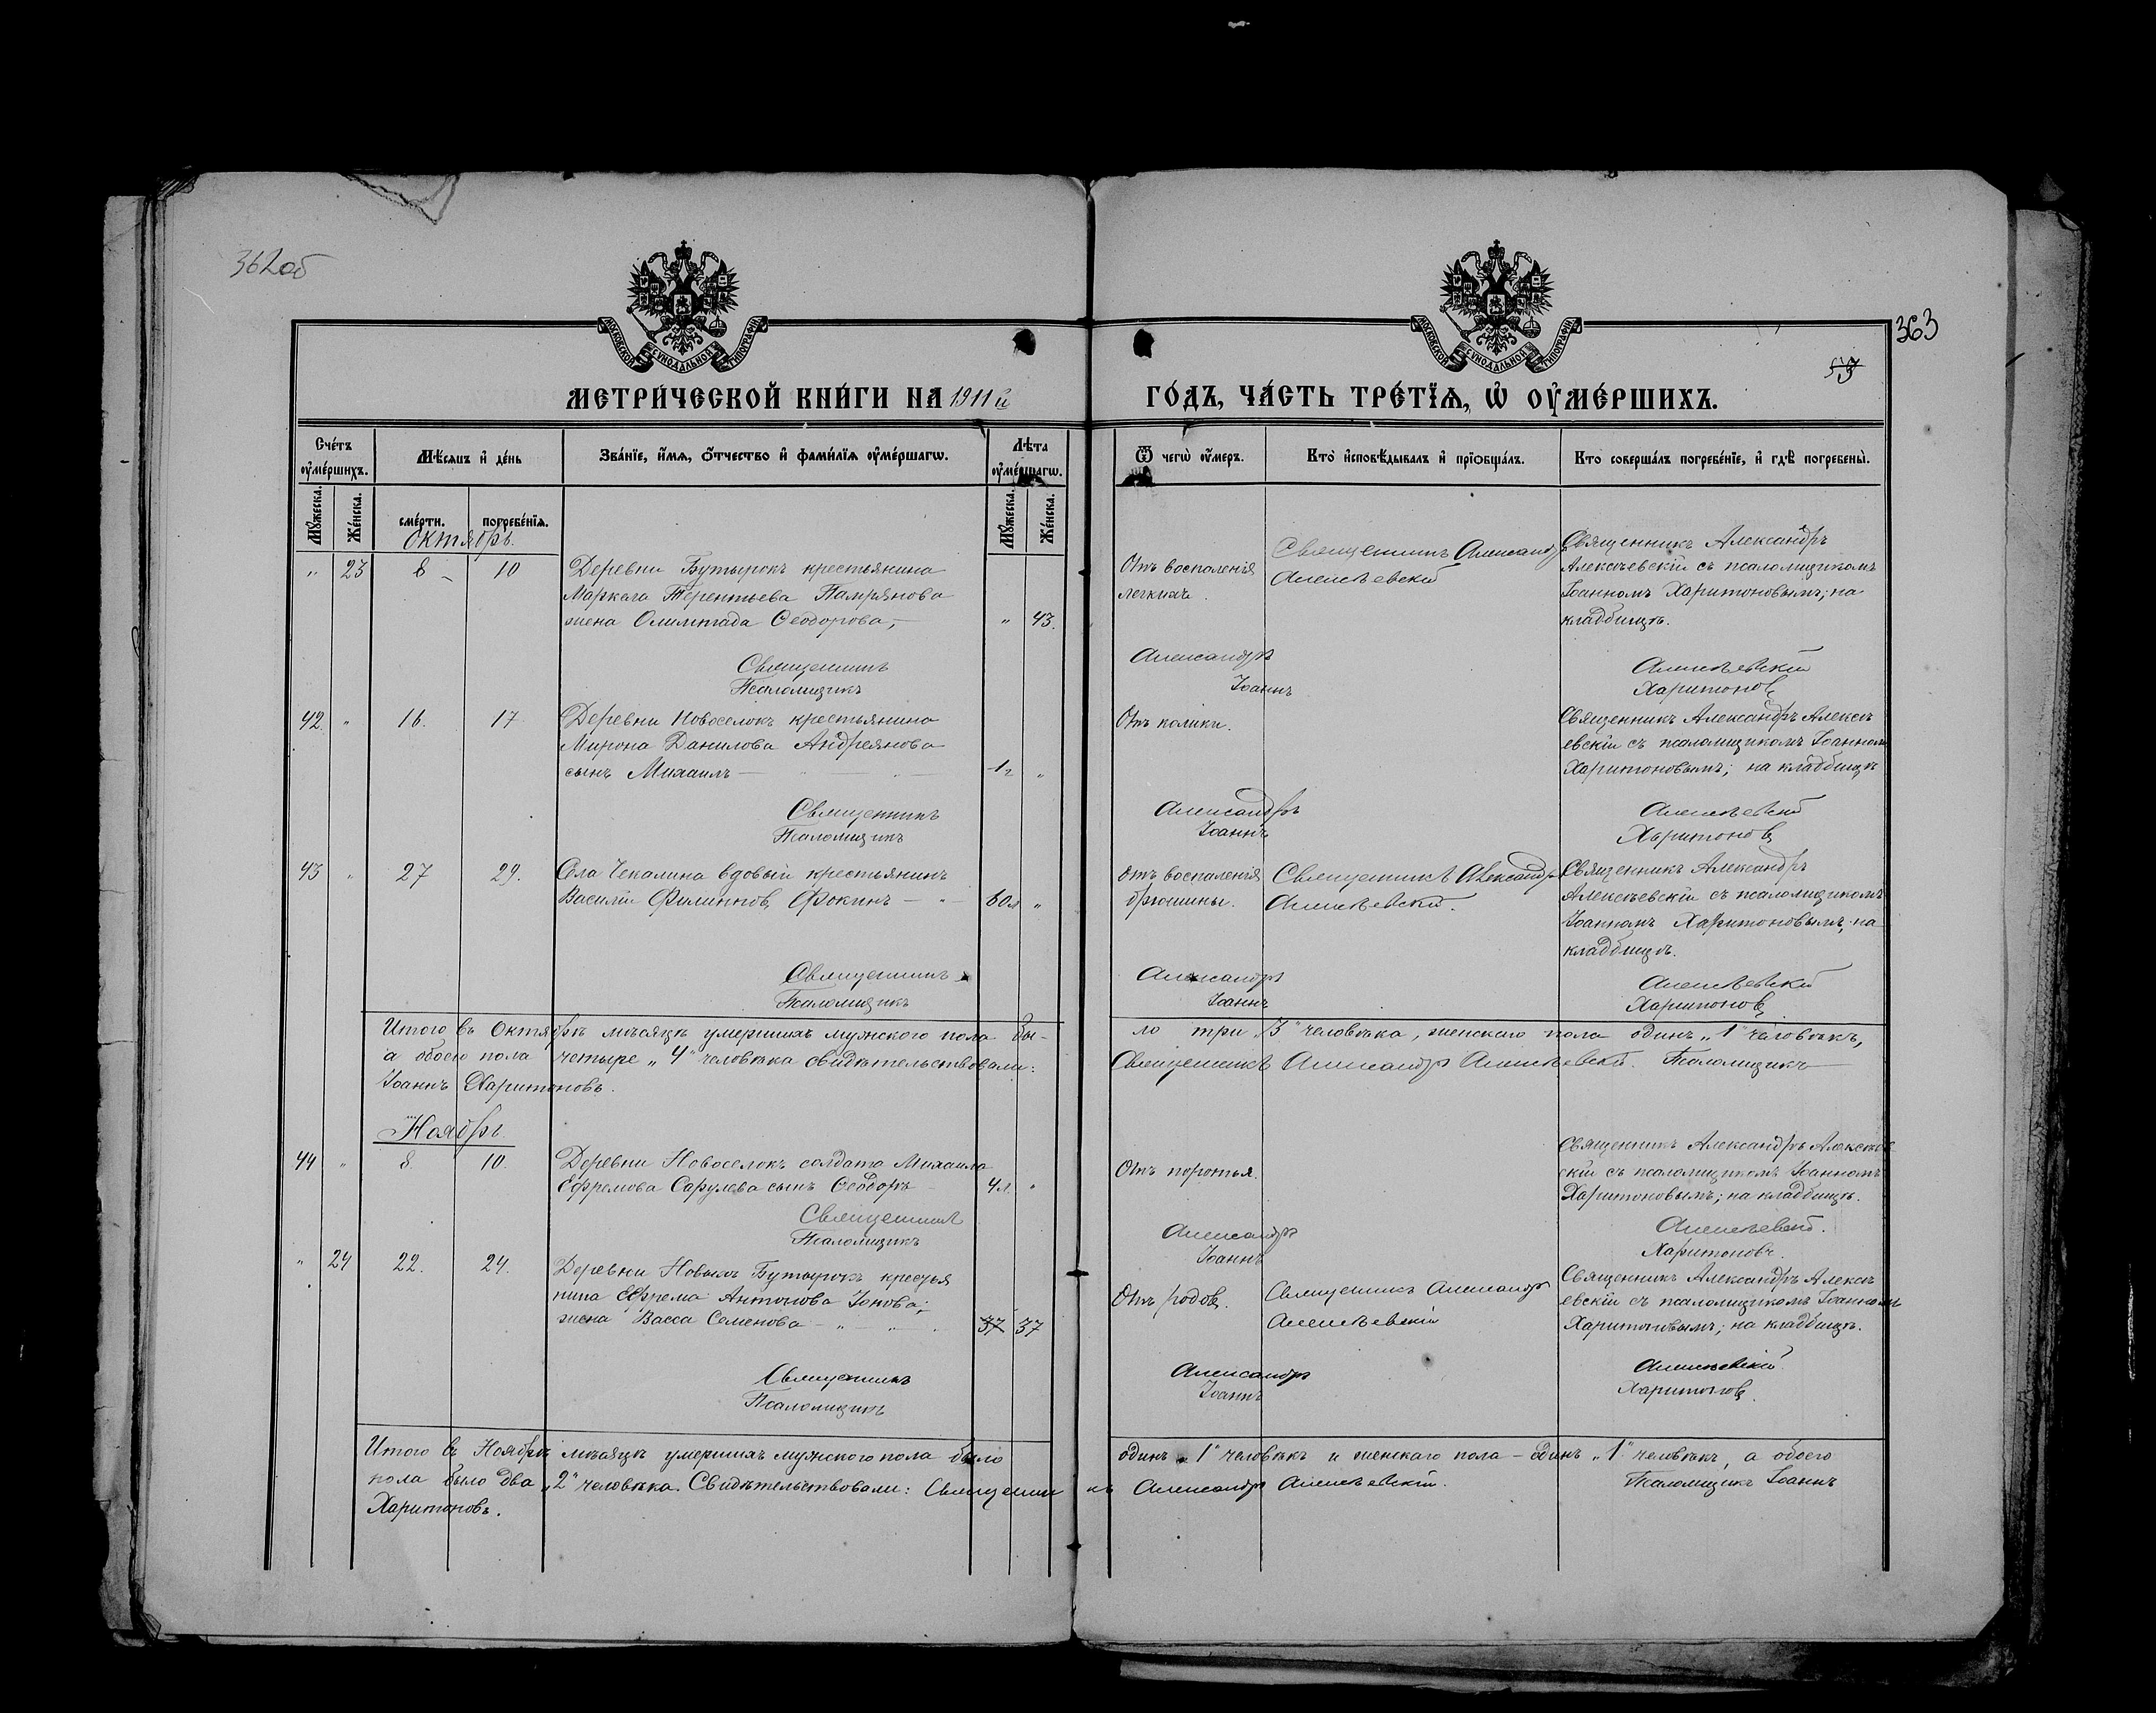 362об
363
МОСКОВСКОЙ СУНОДАЛЬНОЙ ТИПОГРАФІИ
МОСКОВСКОЙ СУНОДАЛЬНОЙ ТИПОГРАФІИ
МЕТРИ́ЧЕСКОЙ КНИ́ГИ НА 1911й
ГО́ДЪ, ЧА́СТЬ ТРЕ́ТЇѦ, Ѡ҆ ОУ҆МЕ́РШИХЪ.
Сче́тъ оу҆ме́ршихъ.
Мѣ́сяцъ и҆ де́нь
Зва́нїе, и҆́мя, ѻ҆́тчество и҆ фами́лїя оу҆ме́ршагѡ.
Лѣ́та оу҆ме́ршагѡ.
Ѿ чегѡ̀ оу҆́меръ.
Кто̀ и҆сповѣ́дывалъ и҆ прїѡбща́лъ.
Кто̀ соверша́лъ погребе́нїе, и҆ гдѣ̀ погребены̀.
Мꙋ́жеска.
Же́нска.
сме́рти.
погребе́нїя.
Мꙋ́жеска.
Же́нска.
Октябрь.
" 23 8 10 Деревни Бутырокъ крестьянина
Маркела Терентьева
жена Олимпіада Ѳеодорова, " 43.
Отъ воспаленія
легкихъ.
Священникъ Александръ
Алексѣевскій
Священникъ Александръ
Алексѣевскій съ псаломщикомъ
Іоанномъ Харитоновымъ; на
кладбищѣ.
Священникъ Александръ Алексѣевскій
Псаломщикъ Іоаннъ Харитоновъ
42 " 16. 17 Деревни Новоселокъ крестьянина
Мирона Данилова Андреянова
сынъ Михаилъ 1г "
Отъ колики.
Священникъ Александръ Алексѣ
евскій съ псаломщикомъ Іоанномъ
Харитоновымъ; на кладбищѣ
Священникъ Александръ Алексѣевскій
Псаломщикъ Іоаннъ Харитоновъ
43 " 27 29. Села Чекалина вдовый крестьянинъ
Василій Филиппов Фокинъ 60л "
Отъ воспаленія
брюшины.
Священникъ Александръ
Алексѣевскій.
Священникъ Александръ
Алексѣевскій съ псаломщикомъ
Іоанномъ Харитоновымъ, на
кладбищѣ.
Священникъ Александръ Алексѣевскій
Псаломщикъ Іоаннъ Харитоновъ
Итого въ Октябрѣ мѣсяцѣ умершихъ мужского пола бы-
ло три „3" человѣка, женскаго пола одинъ „1" человѣкъ,
а обоего пола четыре „4" человѣка свидѣтельствовали:
Священникъ Александръ Алексѣевскій. Псаломщикъ
Іоаннъ Харитоновъ.
Ноябрь.
44 " 8 10. Деревни Новоселокъ солдата Михаила
Ефремова Сарулева сынъ Ѳеодоръ 4л. "
Отъ поротья.
Священникъ Александръ Алексѣев
скій съ псаломщикомъ Іоанномъ
Харитоновымъ; на кладбищѣ.
Священникъ Александръ Алексѣевскій.
Псаломщикъ Іоаннъ Харитоновъ.
" 24 22. 24. Деревни Новыхъ Бутырокъ крестья
нина Ефрема Антонова Іонова;
жена Васса Семенова 37 37
Отъ родов.
Священникъ Александръ
Алексѣевскій
Священникъ Александръ Алексѣ
евскій съ псаломщикомъ Іоанномъ
Харитоновымъ; на кладбищѣ.
Священникъ Александръ Алексѣевскій
Псаломщикъ Іоаннъ Харитоновъ.
Итого въ Ноябрѣ мѣсяцѣ умершихъ мужского пола было
одинъ „1" человѣкъ и женскаго пола – одинъ „1" человѣкъ, а обоего
пола было два „2" человѣка. Свидѣтельствовали: Священникъ Александръ Алексѣевскій.
Псаломщикъ Іоаннъ
Харитоновъ.